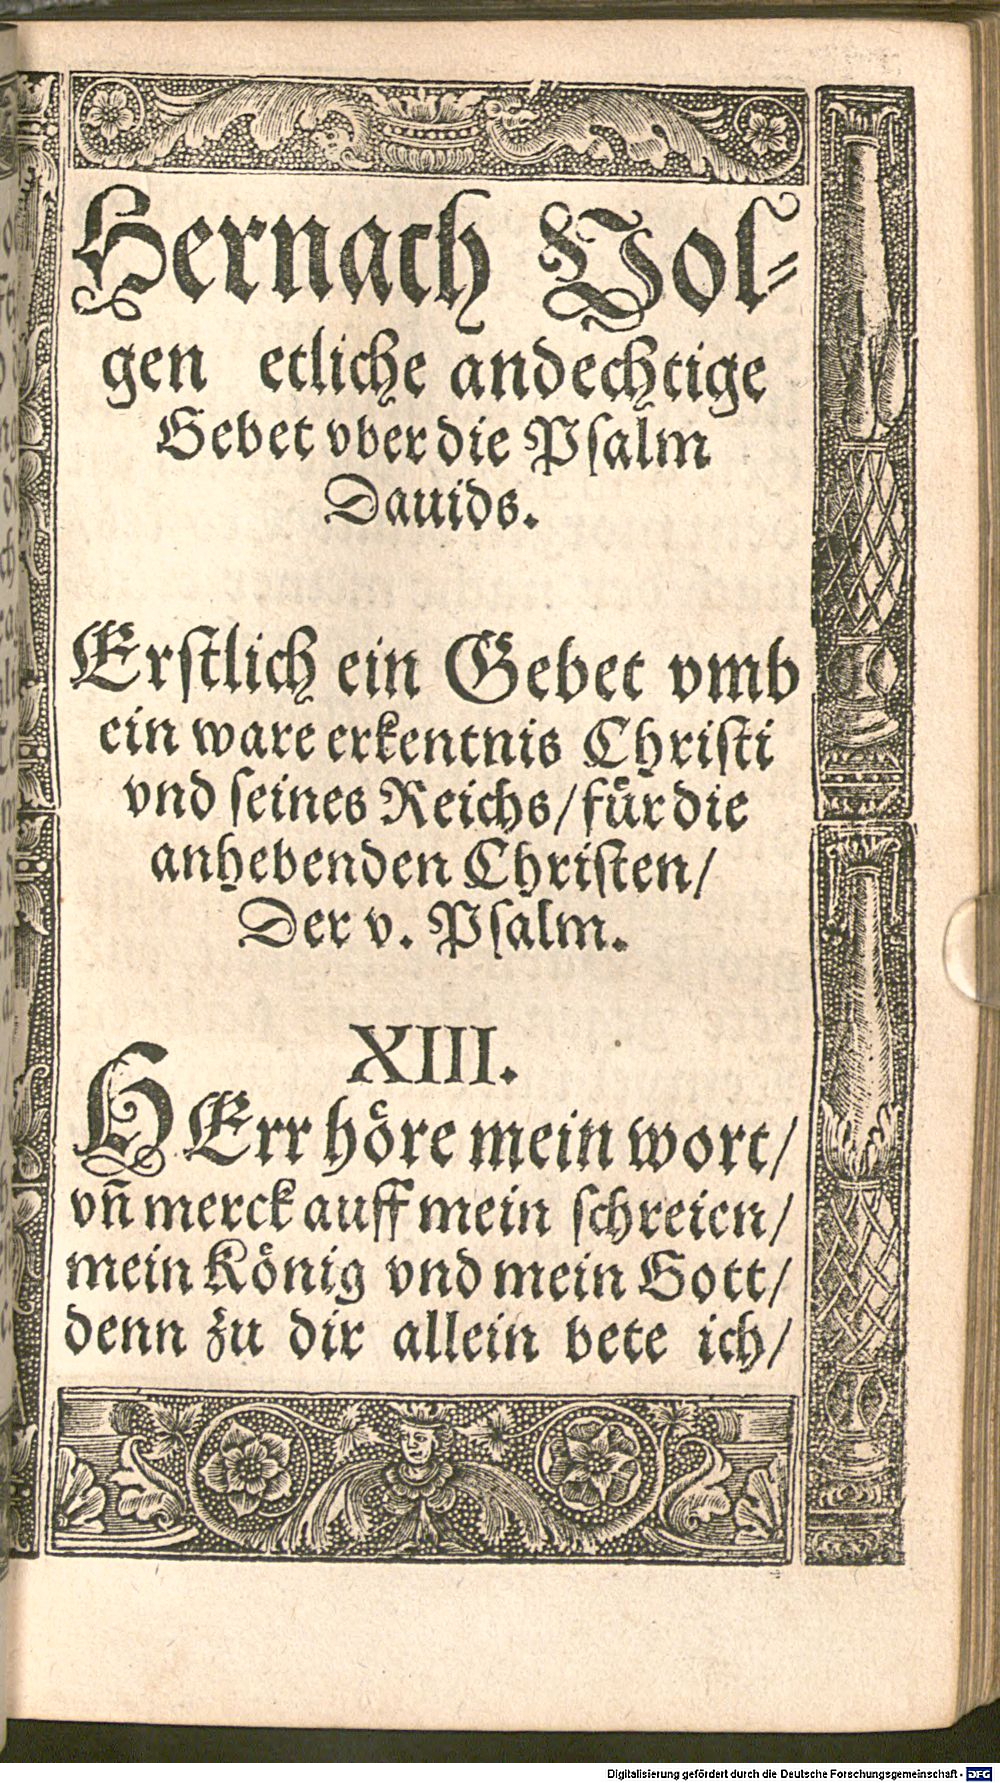 Hernach Vol⸗
gen etliche andechtige
Gebet vber die Pſalm
Dauids.
Erſtlich ein Gebet vmb
ein ware erkentnis Chriſti
vnd ſeines Reichs/ fuͤr die
anhebenden Chriſten/
Der v. Pſalm.
XIII.
HErr hoͤre mein wort/
vñ merck auff mein ſchreien/
mein Koͤnig vnd mein Gott/
denn zu dir allein bete ich/
Digitalisierung gefördert durch die Deutsche Forschungsgemeinschaft - DFG